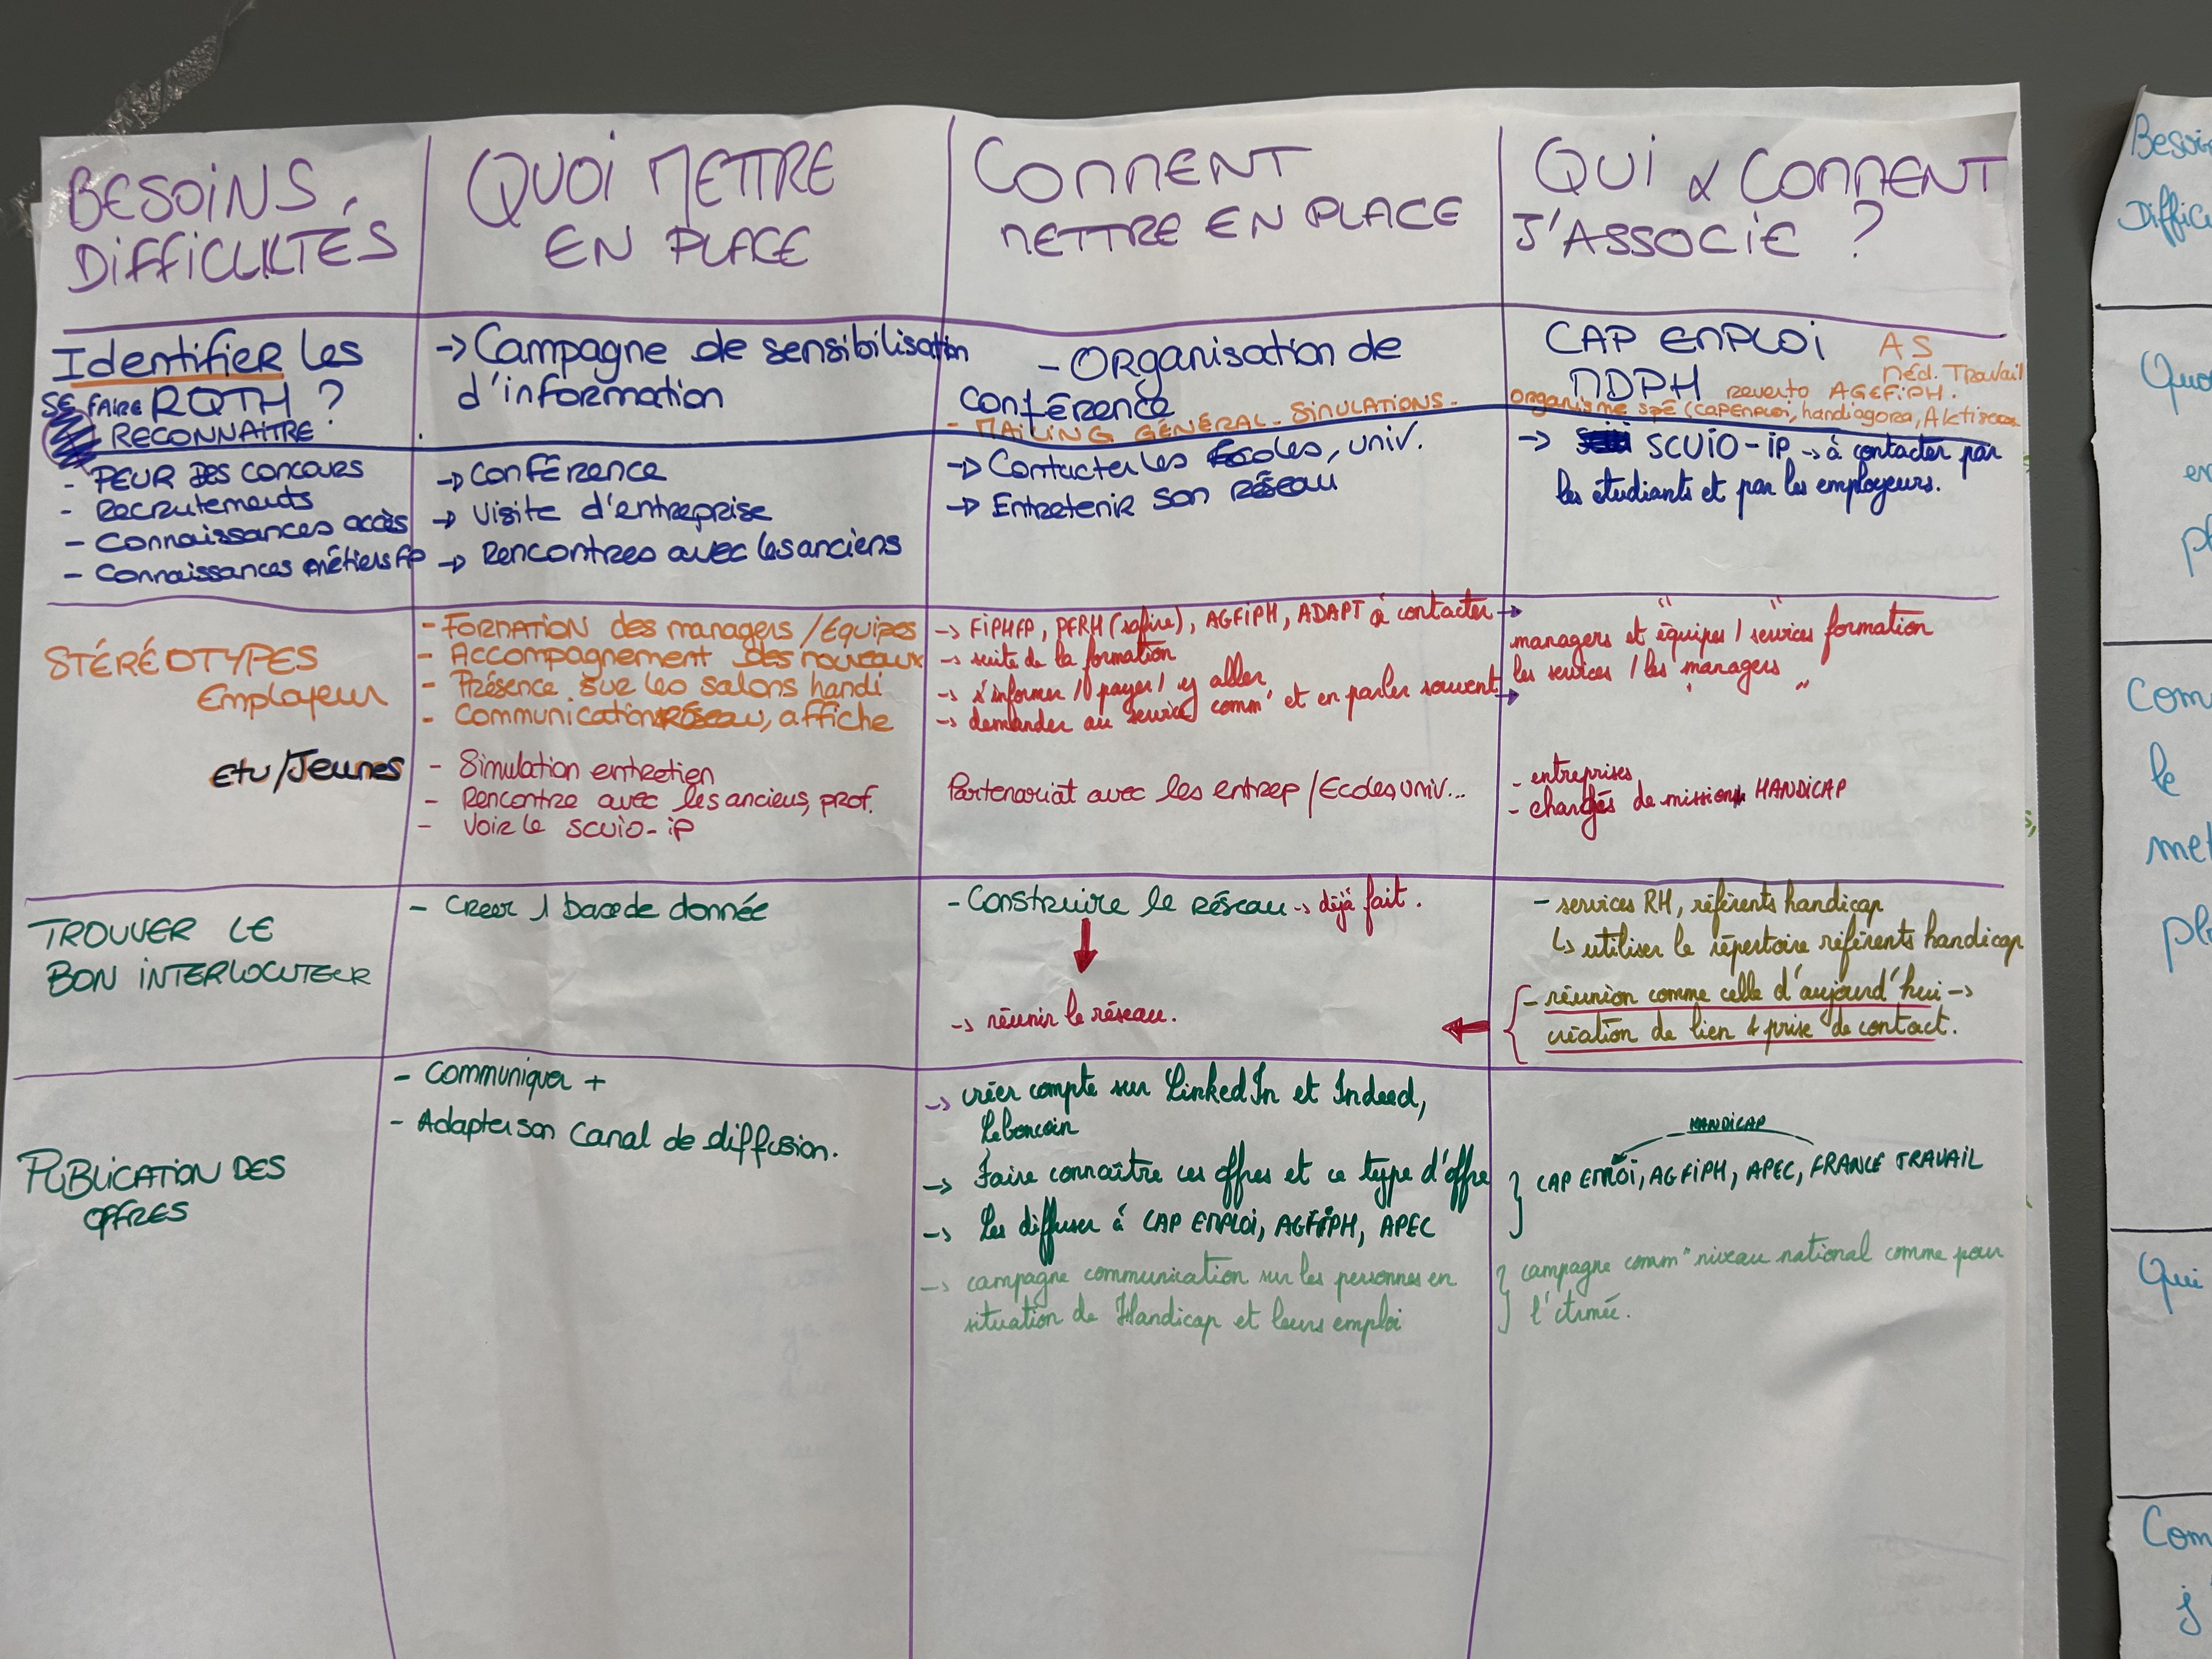 BESOINS,
DIFFICULTÉS
QUOI METTRE
EN PLACE
COMMENT
METTRE EN PLACE
QUI & COMMENT
J'ASSOCIE ?
Identifier les
SE FAIRE RQTH ?
RECONNAITRE
-> Campagne de sensibilisation
d'information
- Organisation de
Conférence
- MAILING GÉNÉRAL - SIMULATIONS -
CAP EMPLOI AS
Méd. Travail
MDPH AGEFIPH.
organisme spé (CAPEmploi, handiagora,
- PEUR DES CONCOURS
- Recrutements
- Connaissances accès
- Connaissances métiers FP
-> Conférence
-> Visite d'entreprise
-> Rencontres avec les anciens
-> Contacter les Ecoles, univ.
-> Entretenir son réseau
-> SCUIO-IP -> à contacter par
les étudiants et par les employeurs.
STÉRÉOTYPES
Employeur
- Formation des managers / Equipes
- Accompagnement des nouveaux
- Présence sur les salons handi
- Communication réseau, affiche
-> FIPHFP, PFRH (safire), AGFIPH, ADAPT à contacter ->
-> suite de la formation
-> s'informer / payer / y aller
-> demander au service comm° et en parler souvent ->
" "
managers et équipes / services formation
les services / les managers
"
etu/Jeunes
- Simulation entretien
- Rencontre avec les anciens, prof.
- Voir le SCUIO-IP
Partenariat avec les entrep / Ecoles univ...
- entreprises
- chargés de mission HANDICAP
TROUVER LE
BON INTERLOCUTEUR
- Creer 1 base de donnée
- Construire le réseau -> déjà fait.
-> réunir le réseau.
- services RH, référents handicap
↳ utiliser le répertoire référents handicap
- réunion comme celle d'aujourd'hui ->
création de lien & prise de contact.
PUBLICATION DES
OFFRES
- Communiquer +
- Adapter son canal de diffusion.
-> créer compte sur LinkedIn et Indeed,
Leboncoin
-> Faire connaître ces offres et ce type d'offre
-> Les diffuser à CAP EMPLOI, AGFIPH, APEC
-> campagne communication sur les personnes en
situation de Handicap et leurs emploi
HANDICAP
} CAP EMPLOI, AGFIPH, APEC, FRANCE TRAVAIL
} campagne comm° niveau national comme pour
l'Armée.
Besoin
Diffic
Quo
en
pl
Com
le
met
pl
Qui
Com
j'